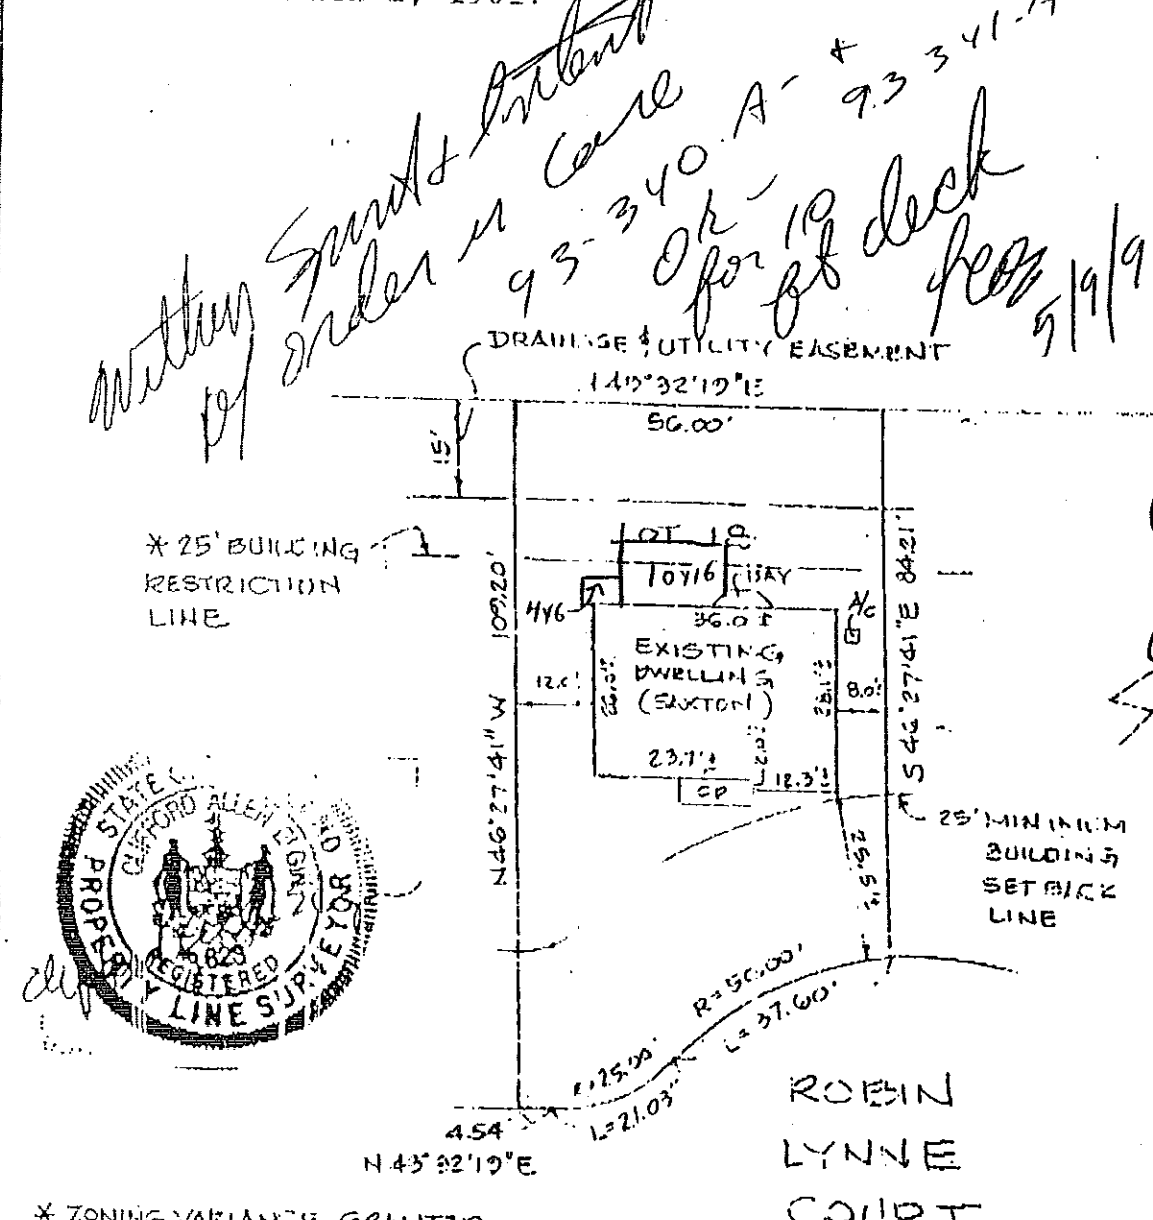 within Spirit & Intent
of order in Case
93-340-A- & 93 341-A
OK-
for 10
ft deck
5/9/9
DRAINAGE & UTILITY EASEMENT
56.00'
15'
* 25' BUILDING
RESTRICTION
LINE
LOT 10
10Y16
BAY
4Y6
36.0±
A/C
EXISTING
DWELLING
(SAXTON)
12.
8.0±
28.1±
23.7±
2.0±
12.3±
CP
N46°27'41"W 109.20'
S46°27'41"E 84.21'
25' MINIMUM
BUILDING
SETBACK
LINE
25.5'±
R=50.00'
L=37.60'
25.00'
L=21.03'
4.54
N 43°32'19"E
ROBIN
LYNNE
COURT
STATE
CLIFFORD ALLEN
REGISTERED
PROPERTY LINE SURVEYOR
* ZONING VARIANCE GRANTED